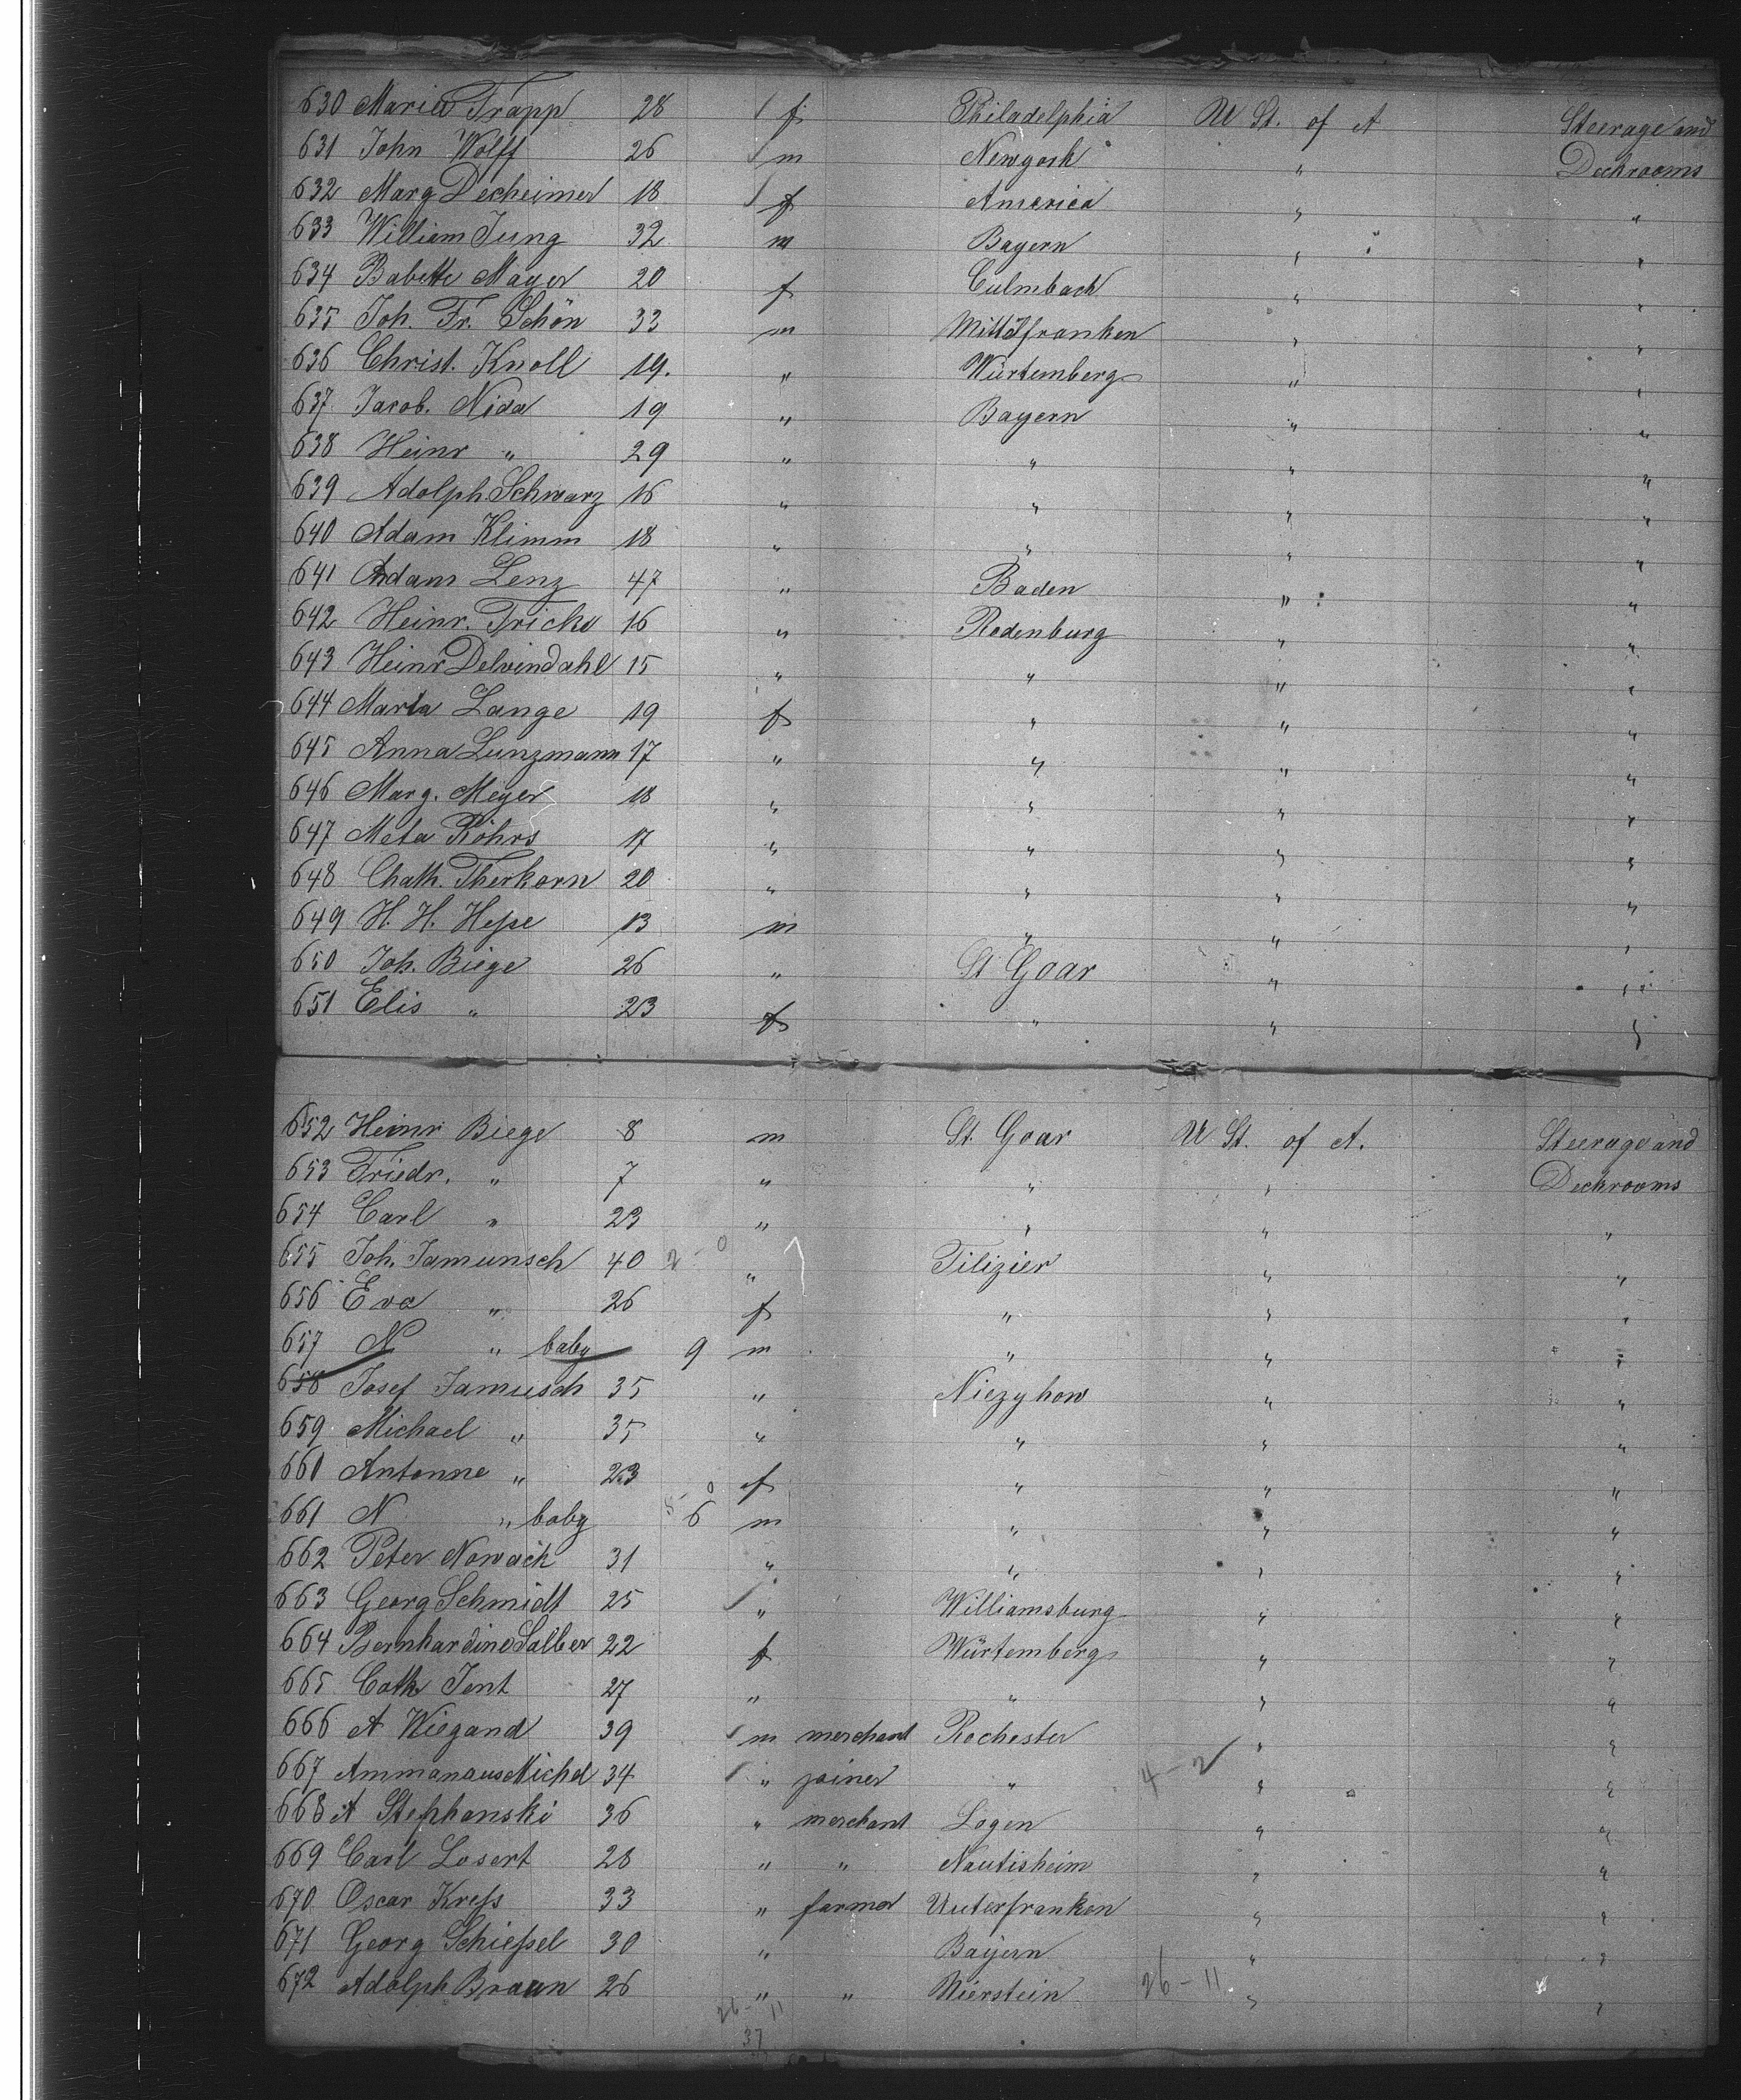 630 Maria Trapp 28 f Philadelphia U St. of A Steerage and
631 John Wolff 26 m Newyork " Deckrooms
632 Marg Decheimer 18 f America " "
633 William Jung 32 m Bayern " "
634 Babette Mayer 20 f Culmbach " "
635 Joh. Fr. Schön 33 m Mittelfranken " "
636 Christ. Knoll 19. " Würtemberg " "
637 Jacob. Nida 19 " Bayern " "
638 Heinr " 29 " " " "
639 Adolph Schwarz 16 " " " "
640 Adam Klimm 18 " " " "
641 Adam Lenz 47 " Baden " "
642 Heinr. Fricke 16 " Rodenburg " "
643 Heinr Delvendahl 15 " " " "
644 Maria Lange 19 f " " "
645 Anna Lunzmann 17 " " " "
646 Marg. Meyer 18 " " " "
647 Meta Röhrs 17 " " " "
648 Chath. Therkorn 20 " " " "
649 H. H. Hesse 13 m " " "
650 Joh. Biege 26 " St Goar " "
651 Elis " 23 f " " "
652 Heinr Biege 8 m St. Goar U St. of A. Steerage and
653 Friedr. " 7 " " " Deckrooms
654 Carl " 23 " " " "
655 Joh. Jamunsch 40 2-0 " Tilizier " "
656 Eva " 26 f " " "
657 N " baby 9 m " " "
658 Josef Jamusch 35 " Niezyhow " "
659 Michael " 35 " " " "
660 Antonne " 23 f " " "
661 N " baby 6 m " " "
662 Peter Nowack 31 " " " "
663 Georg Schmidt 25 " Williamsburg " "
664 Bernhardine Salber 22 f Würtemberg " "
665 Cath Jent 27 " " " "
666 A Wiegand 39 m merchant Rochester " "
667 Ammanaus Michel 34 " joiner " 4-2 " "
668 A Stephanski 36 " merchant Logen " "
669 Carl Losert 28 " " Nautisheim " "
670 Oscar Kress 33 " farmer Unterfranken " "
671 Georg Schiessel 30 " Bayern " "
672 Adolph Braun 26 " " Nierstein 26-11 " "
26-11
37